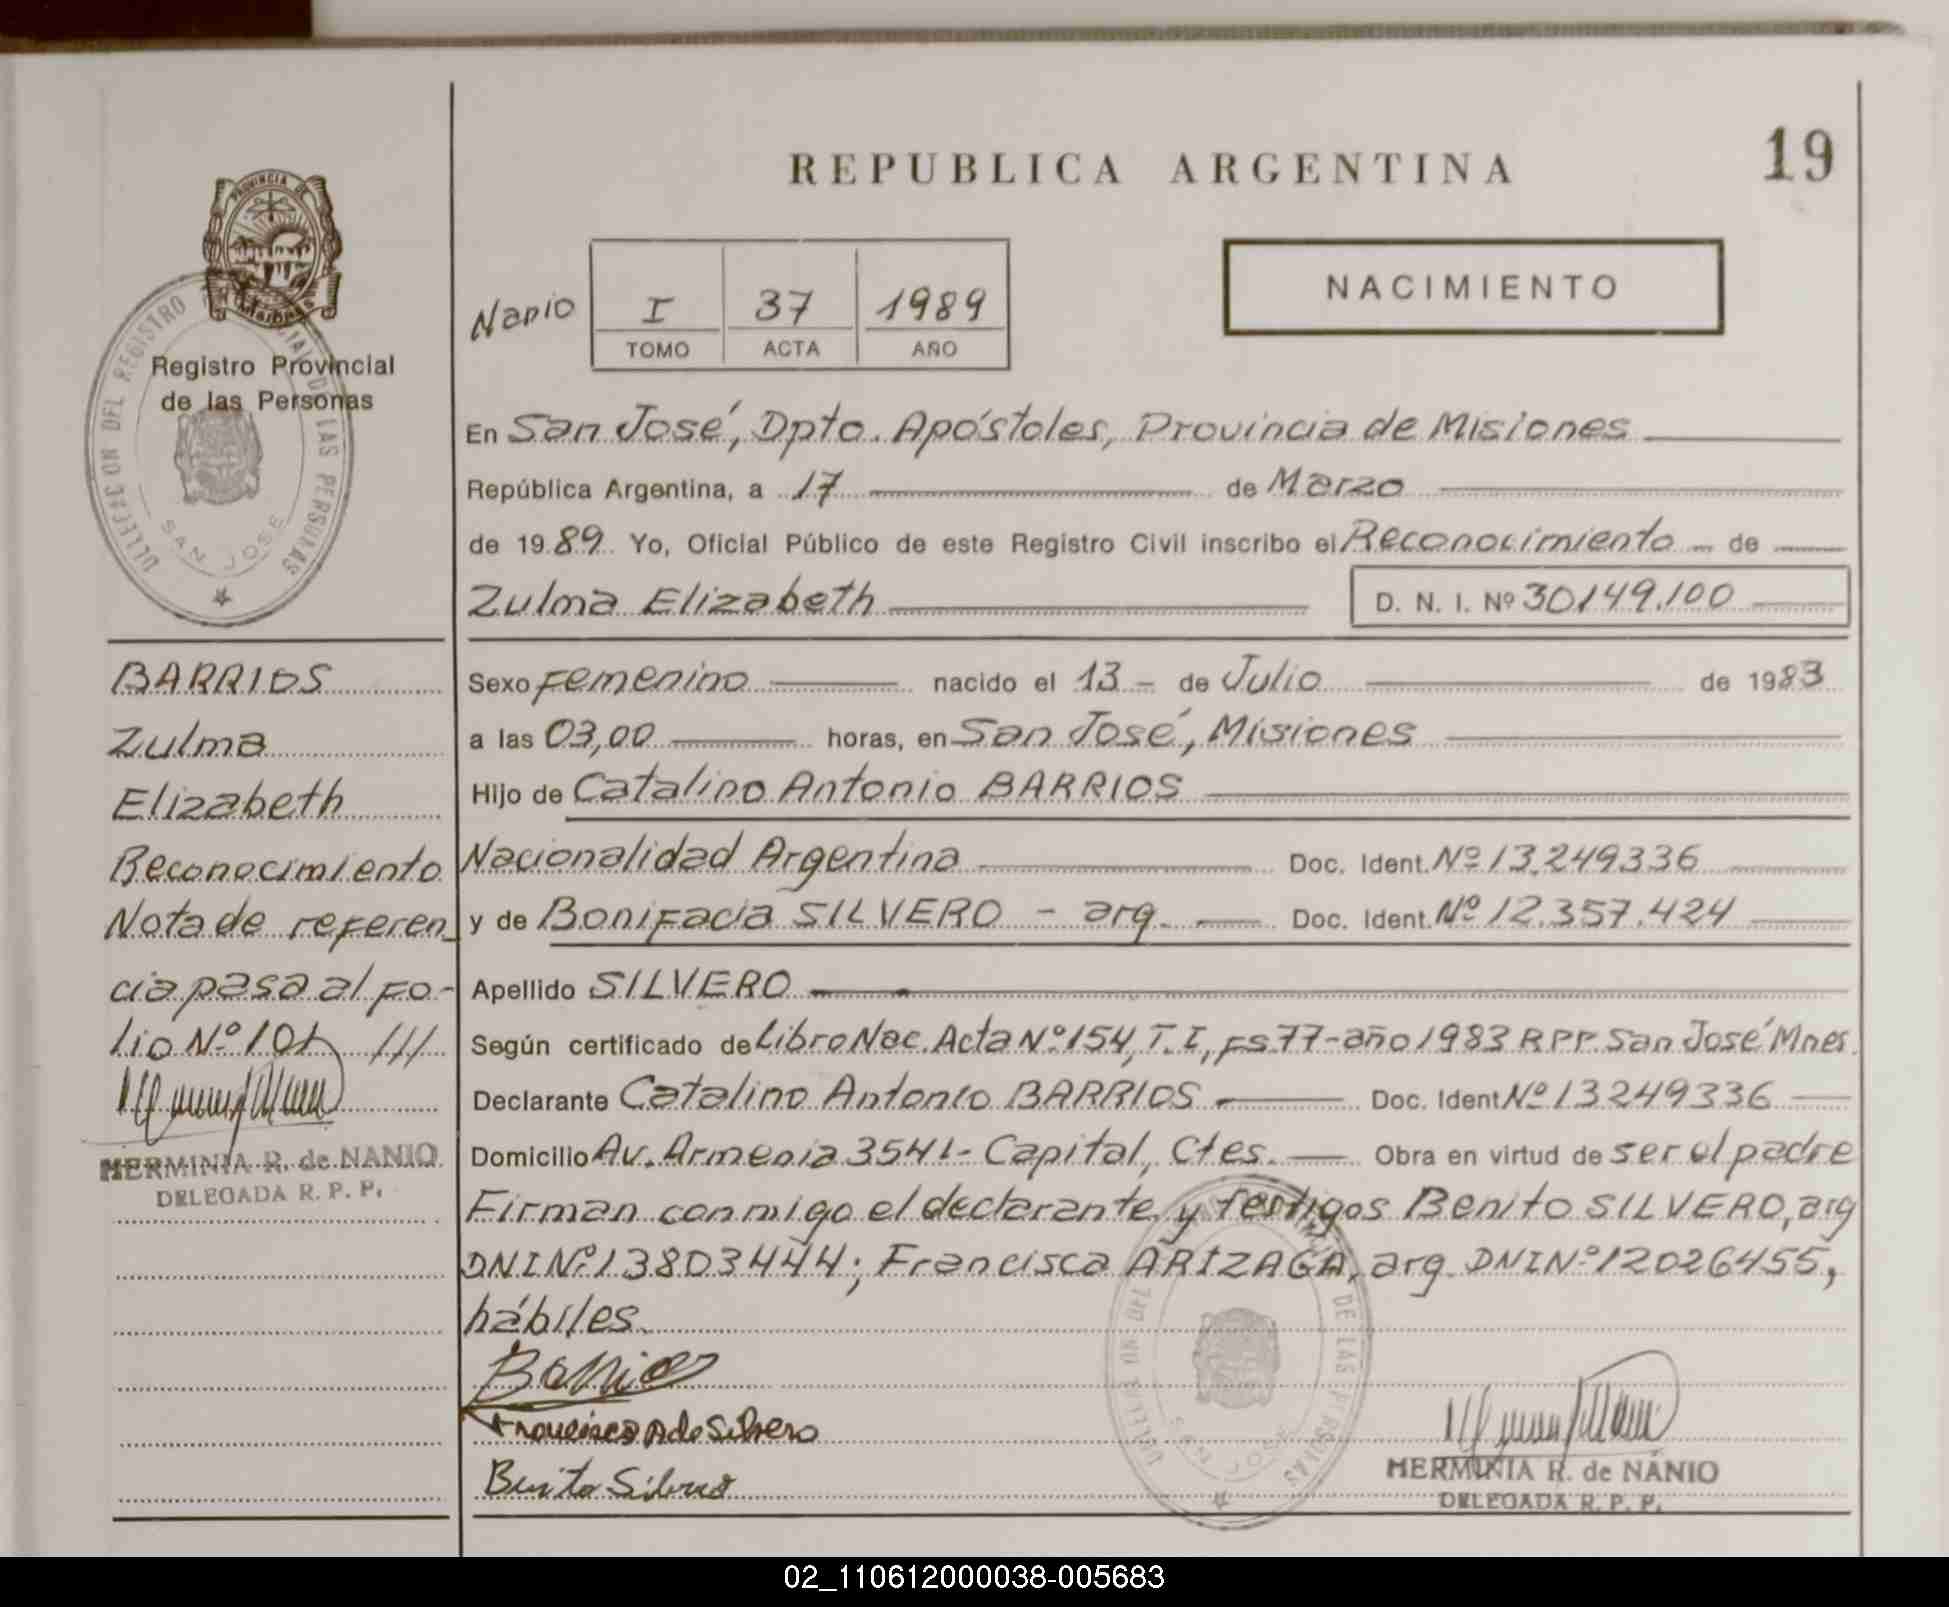 REPUBLICA ARGENTINA
19
NACIMIENTO
Nario
I
37
1989
TOMO
ACTA
AÑO
PROVINCIA DE
Misiones
Registro Provincial
de las Personas
DELEGACION DEL REGISTRO PROVINCIAL DE LAS PERSONAS
SAN JOSE
En San José, Dpto. Apóstoles, Provincia de Misiones
República Argentina, a 17 de Marzo
de 1989 Yo, Oficial Público de este Registro Civil inscribo el Reconocimiento de
Zulma Elizabeth D. N. I. Nº 30149.100
BARRIOS
Zulma
Elizabeth
Reconocimiento
Nota de referen-
cia pasa al fo-
lio Nº 101 ///
HERMINIA R. de NANIO
DELEGADA R. P. P.
Sexo femenino nacido el 13 - de Julio de 1983
a las 03,00 horas, en San José, Misiones
Hijo de Catalino Antonio BARRIOS
Nacionalidad Argentina Doc. Ident. Nº 13.249336
y de Bonifacia SILVERO - arg. Doc. Ident. Nº 12.357.424
Apellido SILVERO
Según certificado de Libro Nac. Acta Nº 154, T. I, fs 77 - año 1983 R P P. San José Mnes.
Declarante Catalino Antonio BARRIOS Doc. Ident Nº 13249336
Domicilio Av. Armenia 3541 - Capital, Ctes. Obra en virtud de ser el padre
Firman conmigo el declarante y testigos Benito SILVERO, arg
DNI Nº 13803444; Francisca ARIZAGA, arg. DNI Nº 12026455,
hábiles.
Barrios
Francisca A de Silvero
Benito Silvero
DELEGACION DEL REGISTRO PROVINCIAL DE LAS PERSONAS
SAN JOSE
HERMINIA R. de NANIO
DELEGADA R. P. P.
02_110612000038-005683